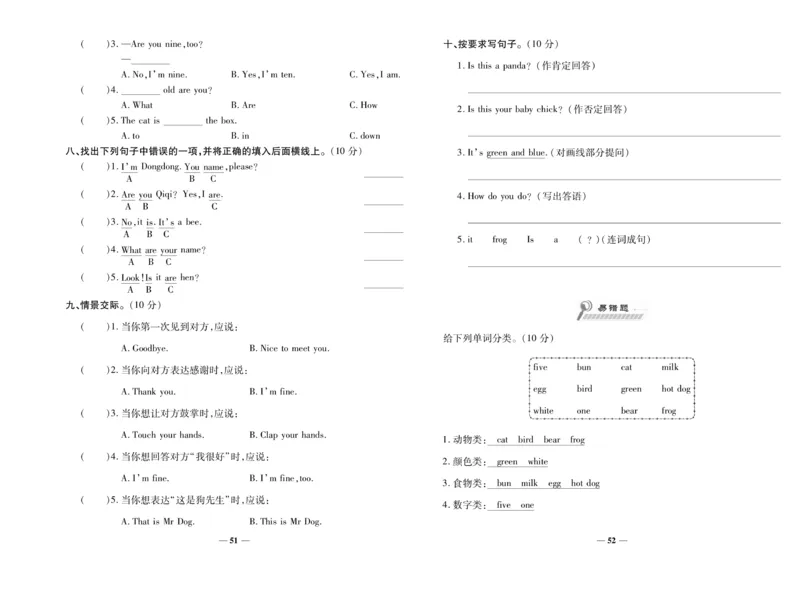 (    )3. —Are you nine,too?
—________
A. No,I'm nine.    B. Yes,I'm ten.    C. Yes,I am.
(    )4. ________ old are you?
A. What    B. Are    C. How
(    )5. The cat is ________ the box.
A. to    B. in    C. down
八、找出下列句子中错误的一项,并将正确的填入后面横线上。(10 分)
(    )1. I'm Dongdong. You name,please?    ________
A    B    C
(    )2. Are you Qiqi? Yes,I are.    ________
A    B    C
(    )3. No,it is. It's a bee.    ________
A    B    C
(    )4. What are your name?    ________
A    B    C
(    )5. Look!Is it are hen?    ________
A    B    C
九、情景交际。(10 分)
(    )1. 当你第一次见到对方,应说:
A. Goodbye.    B. Nice to meet you.
(    )2. 当你向对方表达感谢时,应说:
A. Thank you.    B. I'm fine.
(    )3. 当你想让对方鼓掌时,应说:
A. Touch your hands.    B. Clap your hands.
(    )4. 当你想回答对方“我很好”时,应说:
A. I'm fine.    B. I'm fine,too.
(    )5. 当你想表达“这是狗先生”时,应说:
A. That is Mr Dog.    B. This is Mr Dog.
— 51 —
十、按要求写句子。(10 分)
1. Is this a panda? (作肯定回答)
2. Is this your baby chick? (作否定回答)
3. It's green and blue. (对画线部分提问)
4. How do you do? (写出答语)
5. it    frog    Is    a    ( ? )(连词成句)
易错题
给下列单词分类。(10 分)
five    bun    cat    milk
egg    bird    green    hot dog
white    one    bear    frog
1. 动物类: cat    bird    bear    frog
2. 颜色类: green    white
3. 食物类: bun    milk    egg    hot dog
4. 数字类: five    one
— 52 —